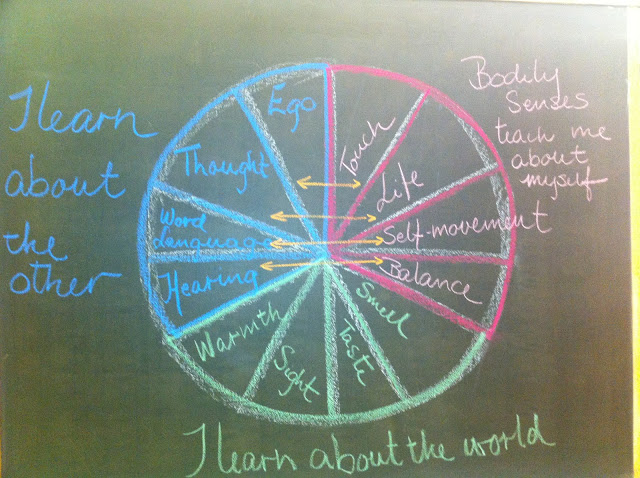 I learn
about
the
other
Bodily
Senses
teach me
about
myself
Ego
Touch
Thought
Life
Word
Language
Self-movement
Hearing
Balance
Warmth
Smell
Sight
Taste
I learn about the world